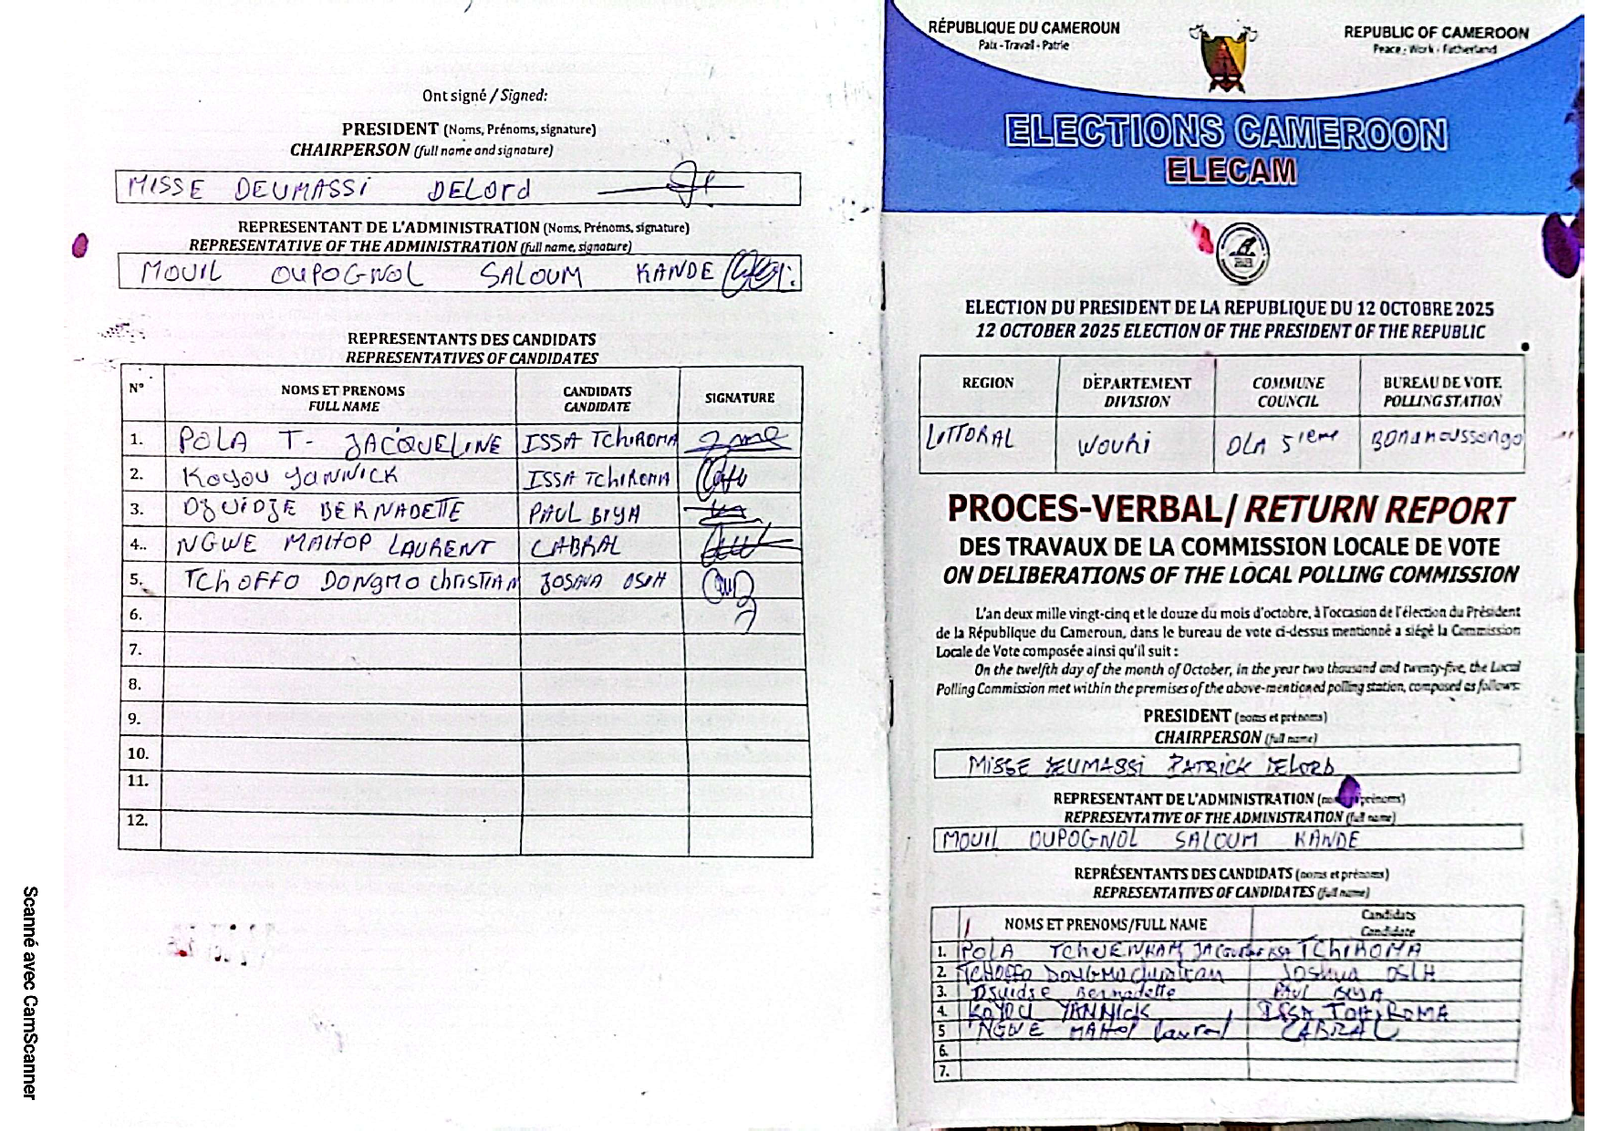 Ont signé / Signed:
PRESIDENT (Noms, Prénoms, signature)
CHAIRPERSON (full name and signature)
MISSE DEUMASSI DELORD
REPRESENTANT DE L'ADMINISTRATION (Noms, Prénoms, signature)
REPRESENTATIVE OF THE ADMINISTRATION (full name, signature)
MOUIL OUPOGNOL SALOUM KANDE
REPRESENTANTS DES CANDIDATS
REPRESENTATIVES OF CANDIDATES
N° NOMS ET PRENOMS FULL NAME CANDIDATS CANDIDATE SIGNATURE
1. POLA T- JACQUELINE ISSA TCHIROMA
2. KOYOU YANNICK ISSA TCHIROMA
3. DJUIDJE BERNADETTE PAUL BIYA
4.. NGWE MAHOP LAURENT CABRAL
5. TCHOFFO DONGMO Christian JOSHUA OSIH
6.
7.
8.
9.
10.
11.
12.
Scanné avec CamScanner
RÉPUBLIQUE DU CAMEROUN
Paix - Travail - Patrie
REPUBLIC OF CAMEROON
Peace - Work - Fatherland
ELECTIONS CAMEROON
ELECAM
ELECTION DU PRESIDENT DE LA REPUBLIQUE DU 12 OCTOBRE 2025
12 OCTOBER 2025 ELECTION OF THE PRESIDENT OF THE REPUBLIC
REGION DÉPARTEMENT DIVISION COMMUNE COUNCIL BUREAU DE VOTE POLLING STATION
LITTORAL WOURI DLA 5ieme Bonamoussongo
PROCES-VERBAL/ RETURN REPORT
DES TRAVAUX DE LA COMMISSION LOCALE DE VOTE
ON DELIBERATIONS OF THE LOCAL POLLING COMMISSION
L'an deux mille vingt-cinq et le douze du mois d'octobre, à l'occasion de l'élection du Président
de la République du Cameroun, dans le bureau de vote ci-dessus mentionné a siégé la Commission
Locale de Vote composée ainsi qu'il suit :
On the twelfth day of the month of October, in the year two thousand and twenty-five, the Local
Polling Commission met within the premises of the above-mentioned polling station, composed as follows:
PRESIDENT (noms et prénoms)
CHAIRPERSON (full name)
MISSE DEUMASSI PATRICK DELORD
REPRESENTANT DE L'ADMINISTRATION (noms et prénoms)
REPRESENTATIVE OF THE ADMINISTRATION (full name)
MOUIL OUPOGNOL SALOUM KANDE
REPRÉSENTANTS DES CANDIDATS (noms et prénoms)
REPRESENTATIVES OF CANDIDATES (full name)
NOMS ET PRENOMS/FULL NAME Candidats Candidate
1. POLA TCHUENKAM TCHIROMA
2. TCHOFFO DONGMO Christian Joshua OSIH
3. Djuidje Bernadette PAUL BIYA
4. KOYOU YANNICK ISSA TCHIROMA
5 NGWE MAHOP Laurent CABRAL
6.
7.